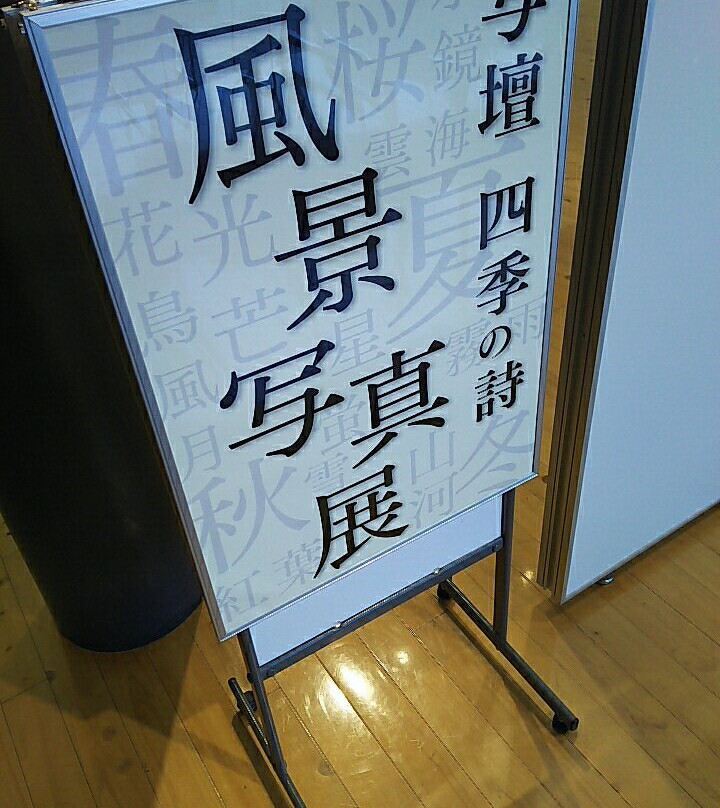 壇 四季の詩
風景写真展
鏡
海
桜
雲
春
夏
光芒
花鳥風月
星
霧
雨
蛍
雪
山河
冬
秋
紅葉